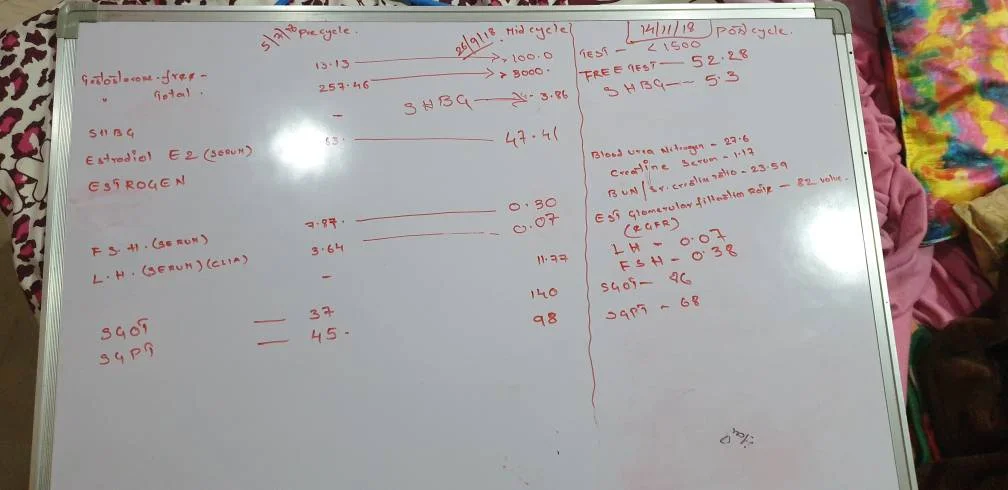 5/7/18 Precycle. 26/9/18 Mid cycle
Testosterone - free - 13.13 → >100.0
" Total. 257.46 → > 3000.
SHBG - SHBG → 3.86
Estradiol E2 (SERUM) 53. 47.41
ESTROGEN
F.S.H. (SERUM) 7.87. 0.30
L.H. (SERUM) (CLIA) 3.64 0.07
- 11.77
SGOT — 37 140
SGPT — 45. 98
14/11/18 Post cycle.
TEST - < 1500
FREE TEST — 52.28
SHBG — 5.3
Blood urea Nitrogen - 27.6
Creatine Serum - 1.17
BUN / Sr. creatin ratio - 23.59
EST Glomerular filtration Rate - 82 value.
(EGFR)
LH - 0.07
FSH - 0.38
SGOT - 86
SGPT - 68